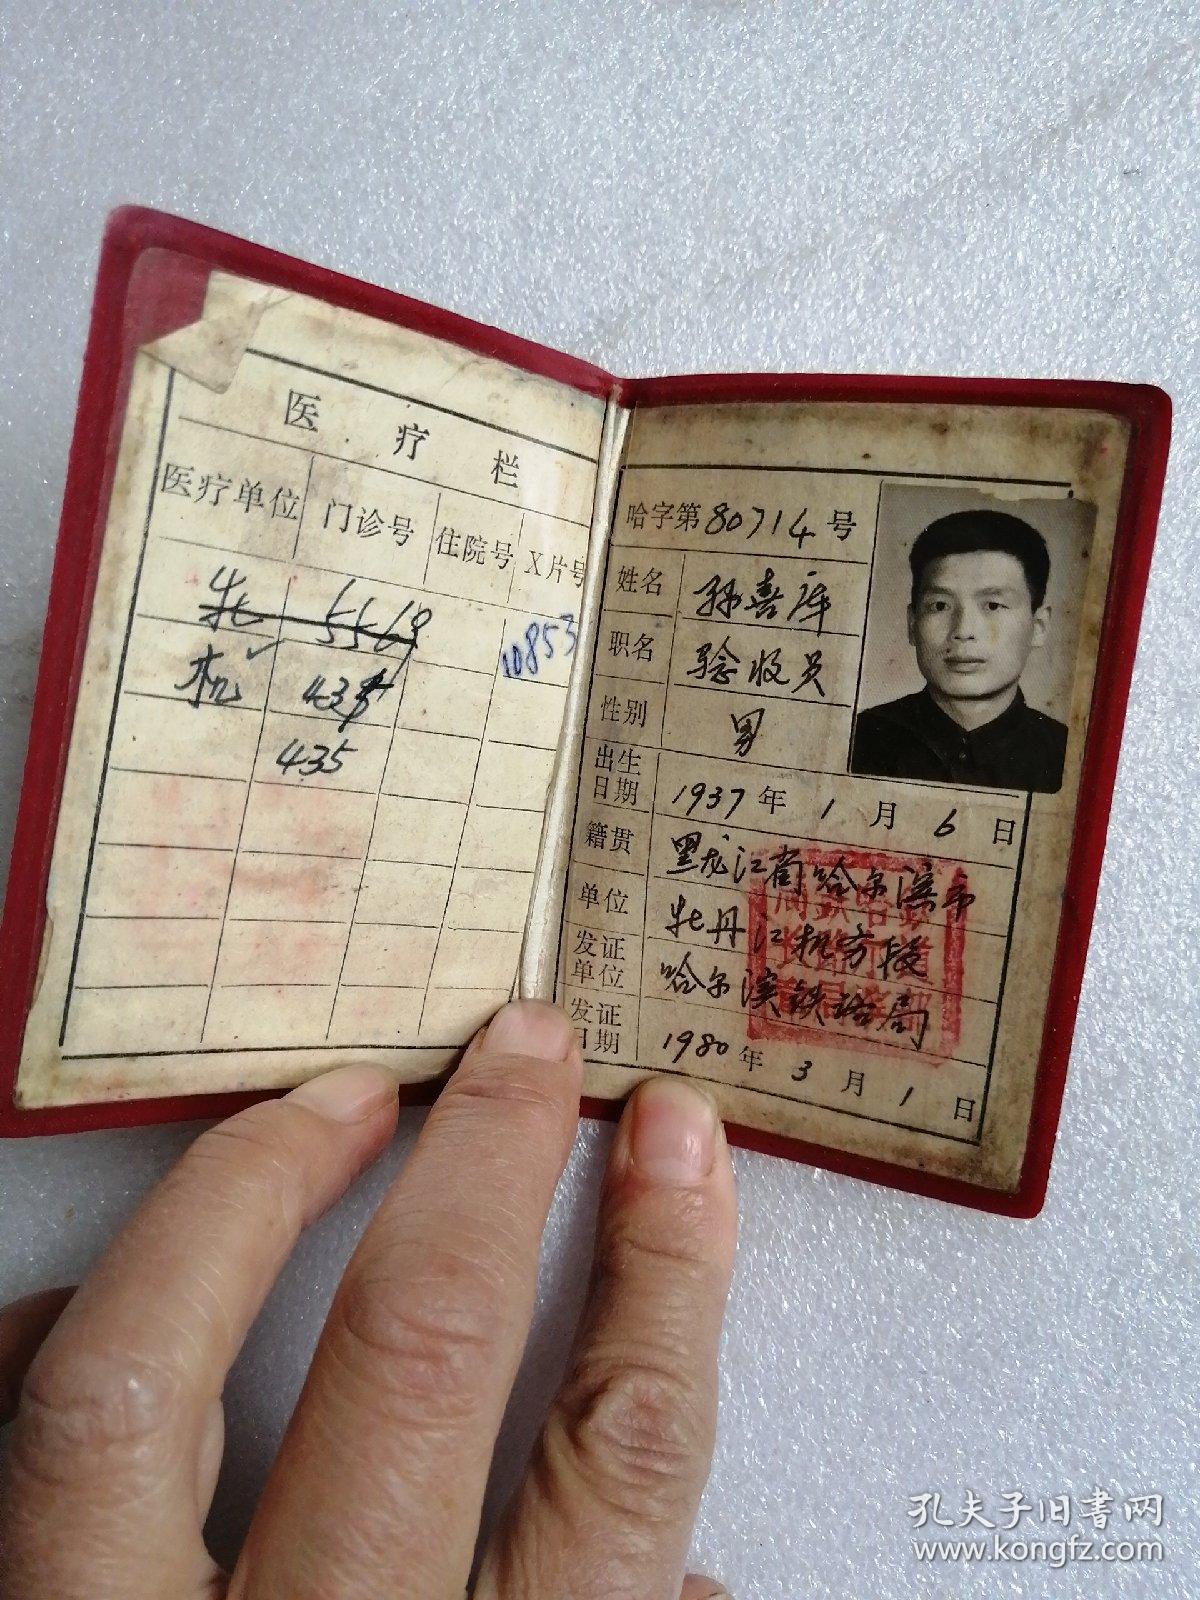 医疗栏
医疗单位 门诊号 住院号 X片号
牡 5569 10853
机 435
435
哈字第80714号
姓名 孙喜库
职名 验收员
性别 男
出生日期 1937年1月6日
籍贯 黑龙江省哈尔滨市
单位 牡丹江机务段
发证单位 哈尔滨铁路局
发证日期 1980年3月1日
孔夫子旧书网
www.kongfz.com